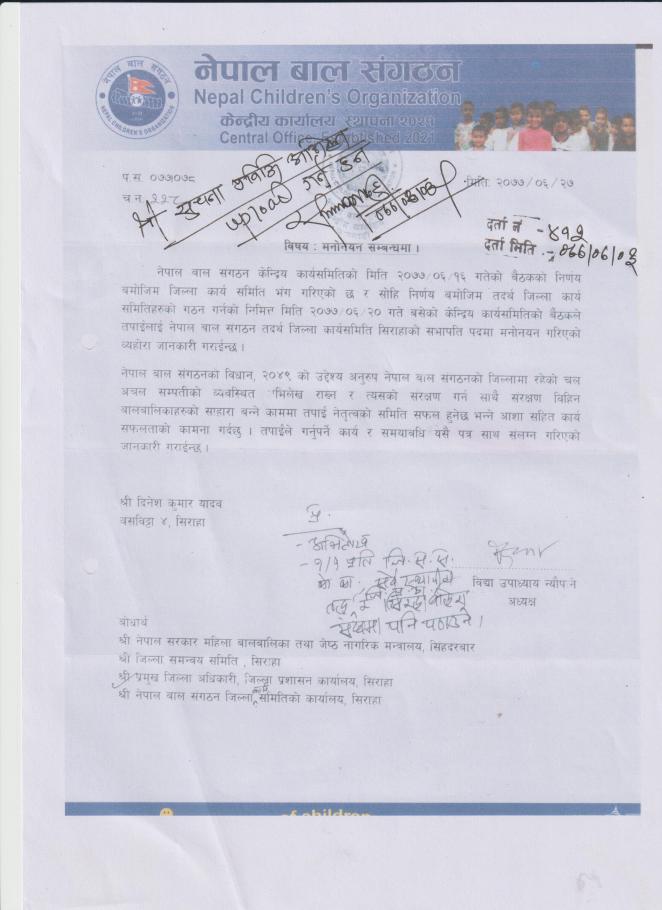 नेपाल बाल संगठन
NEPAL CHILDREN'S ORGANIZATION
नेपाल बाल संगठन
Nepal Children's Organization
केन्द्रीय कार्यालय स्थापना २०२१
Central Office Established 2021
प.स. ०७७/०७८
च.न. २२८
मिति: २०७७/०६/२७
श्री सुचना प्रविधि अधिकृत
upload गर्नु हुन
दर्ता नं - ४१२
दर्ता मिति -
विषय : मनोनयन सम्बन्धमा ।
नेपाल बाल संगठन केन्द्रिय कार्यसमितिको मिति २०७७/०६/१६ गतेको बैठकको निर्णय
बमोजिम जिल्ला कार्य समिति भंग गरिएको छ र सोहि निर्णय बमोजिम तदर्थ जिल्ला कार्य
समितिहरुको गठन गर्नको निमित्त मिति २०७७/०६/२० गते बसेको केन्द्रिय कार्यसमितिको बैठकले
तपाईलाई नेपाल बाल संगठन तदर्थ जिल्ला कार्यसमिति सिराहाको सभापति पदमा मनोनयन गरिएको
व्यहोरा जानकारी गराईन्छ ।
नेपाल बाल संगठनको विधान, २०४९ को उद्देश्य अनुरुप नेपाल बाल संगठनको जिल्लामा रहेको चल
अचल सम्पतीको व्यवस्थित भिलेख राख्न र त्यसको संरक्षण गर्न साथै संरक्षण विहिन
बालबालिकाहरुको सहारा बन्ने काममा तपाई नेतृत्वको समिति सफल हुनेछ भन्ने आशा सहित कार्य
सफलताको कामना गर्दछु । तपाईले गर्नुपर्ने कार्य र समयाबधि यसै पत्र साथ संलग्न गरिएको
जानकारी गराईन्छ ।
श्री दिनेश कुमार यादव
वसविट्टा ४, सिराहा
प्र.
- अभिलेख
- १/१ प्रति जि. स. स.
पनि पठाउने ।
विद्या उपाध्याय न्यौपाने
अध्यक्ष
बोधार्थ
श्री नेपाल सरकार महिला बालबालिका तथा जेष्ठ नागरिक मन्त्रालय, सिहदरबार
श्री जिल्ला समन्वय समिति , सिराहा
श्री प्रमुख जिल्ला अधिकारी, जिल्ला प्रशासन कार्यालय, सिराहा
श्री नेपाल बाल संगठन जिल्ला कार्य समितिको कार्यालय, सिराहा
of children